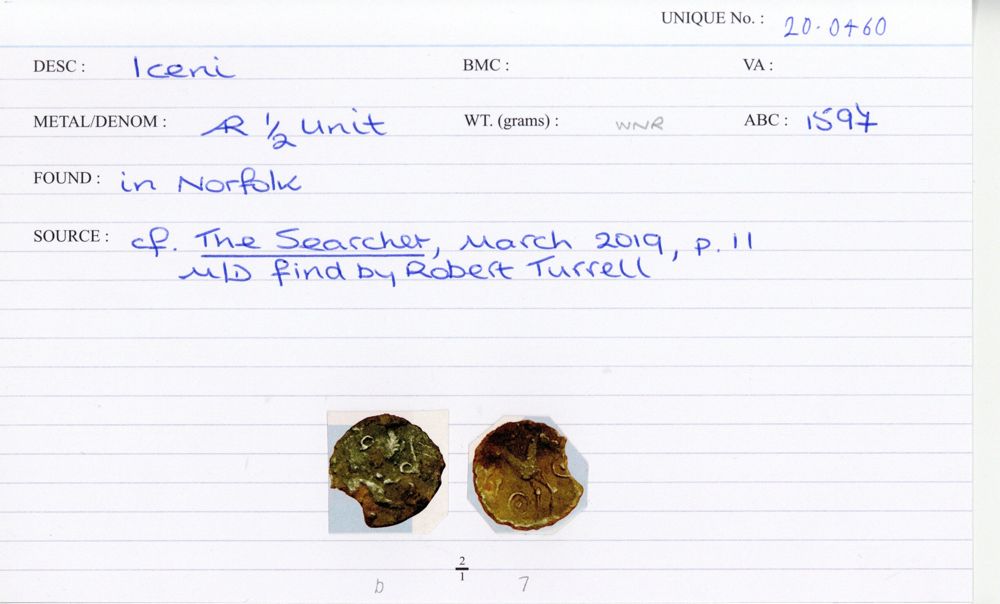 UNIQUE No. : 20.0460
DESC : Iceni BMC : VA :
METAL/DENOM : AR 1/2 Unit WT. (grams) : WNR ABC : 1597
FOUND : in Norfolk
SOURCE : cf. The Searcher, March 2019, p. 11
M/D find by Robert Turrell
2
1
b 7